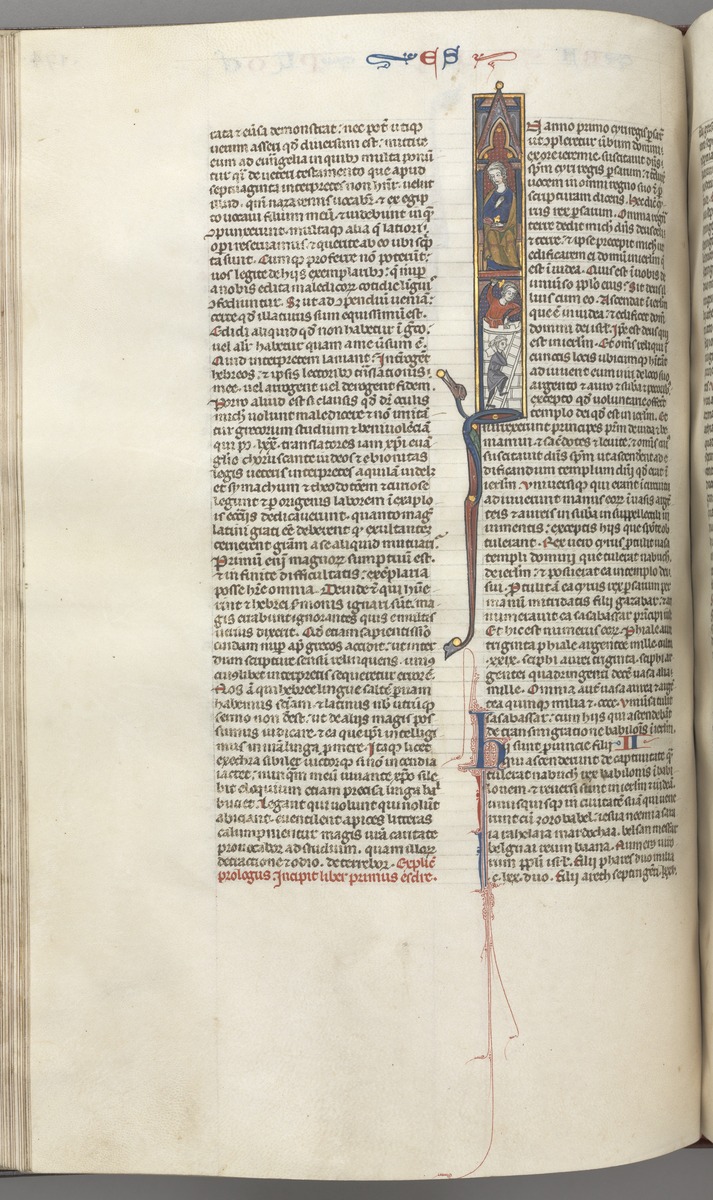 ES
rata et cuncta demonstrat: nec pot utiq
uerum asseri qd diuersum est: mittite
eum ad euuangelia in quibz multa ponunt
tur q de ueteri testamento que apud
septuaginta interpretes non hnt: uelut
illud. qm nazareus uocabit. et ex egip
to uocaui filium meu. et uidebunt in que
9punxerunt. multaq alia q latiori
opi reseruamus. et querite ab eo ubi scpta
ta sunt. Cumq proferre no potuerit:
uos legite de hiis exemplaribz: q nup
a nobis edita maledicoz cotidie ligui
9fodiuntur. Sz ut ad 9pendiu ueniam:
certe qd illaturus sum equissimu est.
Edidi aliquid qd non habetur i greco:
uel alit habetur quam a me uersum e.
Quid interpretem laniant. Interrogent
hebreos: et ipsis auctoribz
mee uel arrogent uel derogent fidem.
Porro aliud est si clausis qd dr oculis
michi uolunt maledicere et no imitan
tur grecorum studium et beniuolenciam
qui p lxx. translatores iam xpi euan
glio choruscante iudeos et ebionitas
legis ueteris interpretes aquilam uidelz
et symachum et theodocionem et curiose
legunt et p origenis laborem i exaplo
is ecctiis dedicauerunt. quanto mag
latini grati ee deberent q exultantem
cernerent greciam a se aliquid mutuari.
Primum eni magnoz sumptuu est.
et infinite difficultatis: exemplaria
posse habere omnia. Deinde et qui hue
rint et hebrei smonis ignari sut: ma
gis errabunt ignorantes quis e multis
uerius dixerit. Qd etiam sapientissio
cuidam nup ap grecos accidit: ut inter
dum scripture sensum relinquens. unius
cuiuslibet interpretis sequeretur errore.
Nos a qui hebree lingue saltem paruam
habemus sciam. et latinus nob utcuq
sermo non deest. et de aliis magis pos
sumus iudicare: et ea que ipi intelligi
mus in nra lingua pmere. Itaq licet
excetra sibilet uictorq si no incendia
iactet: nunqm meu iuuante xpo sile
bit eloquium etiam precisa lingua bal
buciet. Legant qui uolunt qui nolunt
abiciant. euentilent apices litteras
calumpnientur magis ura caritate
prouocabor ad studium. quam illorz
detractione et odio deterrebor. Explic
prologus. Incipit liber primus esdre.
In anno primo cyri regis psar
ut 9pleretur ubum domini
ex ore ieremie. suscitauit dns
spm cyri regis psarum: et tduxit
uocem in omni regno suo et p
scripturam dicens. Hec dic cy
rus rex psarum. Omnia regna
terre dedit michi dns deus celi
et terre: et ipse precepit michi ut
edificarem ei domu in ierlm q
est i iudea. Quis est i uobis de
uniuso pplo eius: Sit deus il
lius cum eo. Ascendat i ierlm
que e in iudea: et edificet dom
domini dei isrl. Ipe est deus qui
est in ierlm. Et oms reliqui i
cunctis locis ubicumq hitant
adiuuent eum uiri de loco suo
argento et auro et suba et pecorib
excepto qd uoluntarie offerut
templo dei qd est in ierlm. Et
surrexerunt principes prm de iuda et be
niamin. et sacdotes et leuite: et omis cui
suscitauit dns spm ut ascenderet ad e
dificandum templum dni qd erat i
ierlm. Vniuersiq qui erant i circuitu
adiuuerunt manus eorz i uasis arge
teis et aureis in suba in suppellectili in
iumentis: exceptis hiis que sponte ob
tulerant. Rex uero cyrus ptulit uasa
templi domini que tulerat nabuch.
de ierlm: et posuerat ea in templo dei
sui. Ptulit a ea cyrus rex psarum per
manu mitridatis filii gazabar: et an
numerauit ea sasabassar principi iude
Et hic est numerus eorz. Phiale auree
triginta phiale argentee mille. cultri
.xxix. sciphi aurei triginta. sciphi ar
gentei quadringenti decem uasa alia
mille. Omnia aut uasa aurea et argen
tea quinq milia et cccc. Vniusa tulit
sasabassar: cum hiis qui ascendebant
de transmigratione babilonis i ierlm.
Hi sunt puincie filii II
qui ascenderunt de captiuitate qm
tulerat nabuch rex babilonis i babi
lonem. et reuersi sunt in ierlm et iudea
unusquisq in ciuitate sua qui uene
runt cu zorobabel: iesua neemia sara
ia rahelaia mardochaa. belsan mesfar
beguai reum baana. Numerus uiro
rum ppli isrl. Filii phares duo milia
c. lxx. duo. Filii arech septingenti. lxxv.